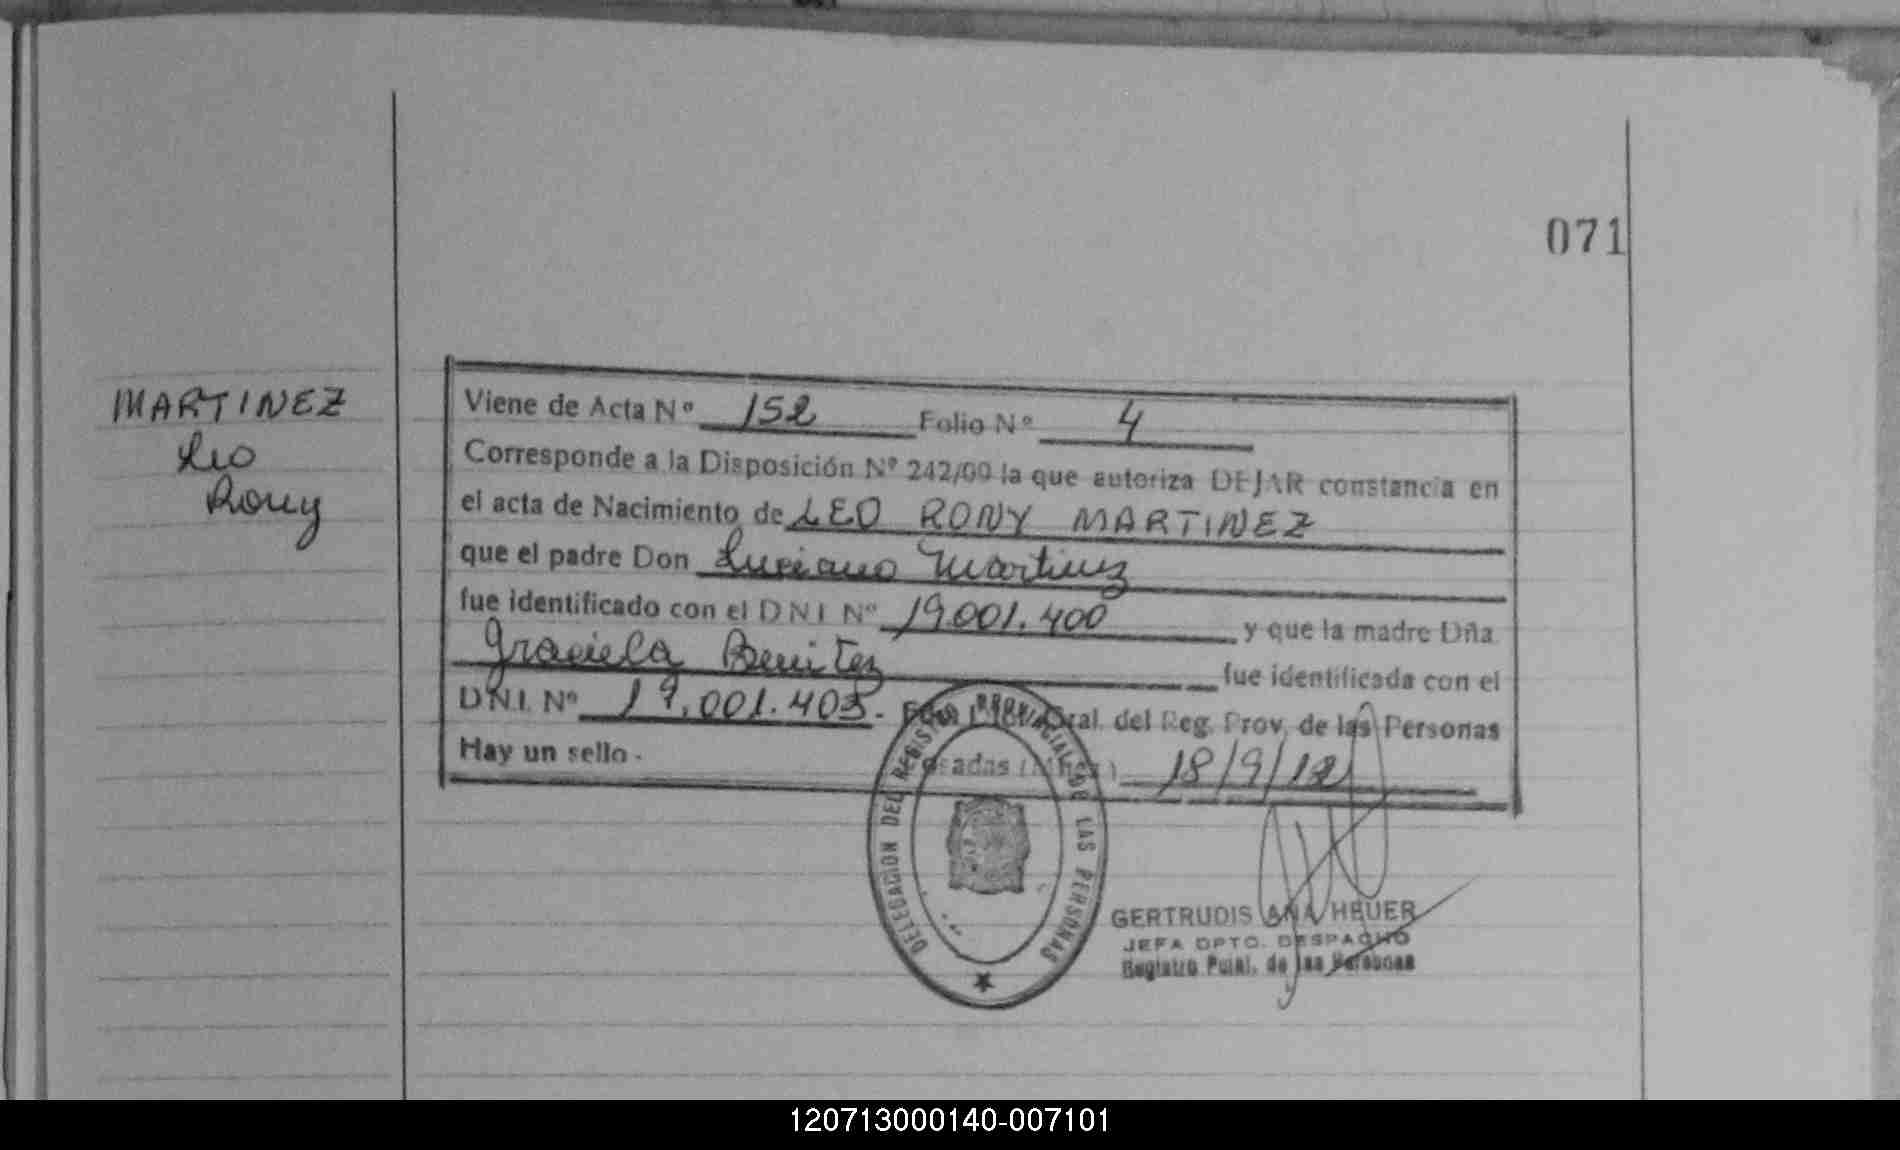 071
MARTINEZ
Leo
Rony
Viene de Acta Nº 152 Folio Nº 4
Corresponde a la Disposición Nº 242/09 la que autoriza DEJAR constancia en
el acta de Nacimiento de LEO RONY MARTINEZ
que el padre Don Luciano Martinez
fue identificado con el D N I Nº 19.001.400 y que la madre Dña.
Graciela Benitez fue identificada con el
D.N.I. Nº 19.001.403. Gral. del Reg. Prov. de las Personas
Hay un sello - Posadas (Mnes) 18/9/12
DELEGACION DEL REGISTRO PROVINCIAL DE LAS PERSONAS
GERTRUDIS ANA HEUER
JEFA DPTO. DESPACHO
Registro Pcial. de las Personas
120713000140-007101